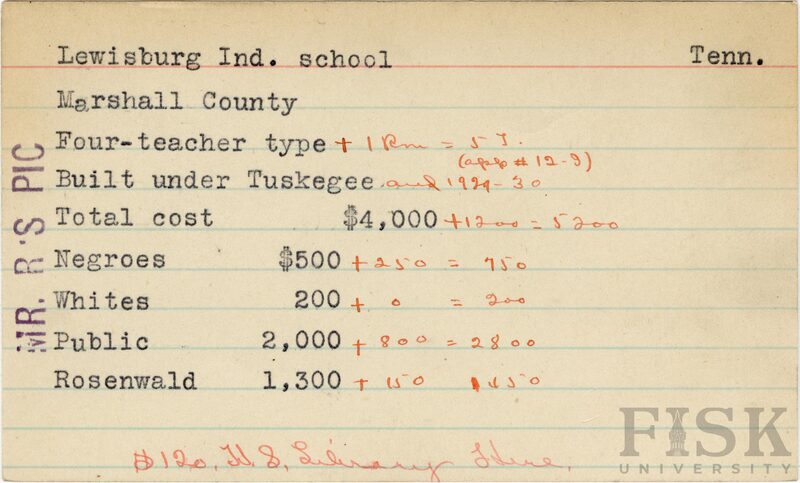 Lewisburg Ind. school Tenn.
Marshall County
Four-teacher type + 1 Rm = 5 T.
(app # 12-J)
Built under Tuskegee and 1929-30
Total cost $4,000 +1200 = 5200
Negroes $500 + 250 = 750
Whites 200 + 0 = 200
Public 2,000 + 800 = 2800
Rosenwald 1,300 + 150 1450
$120. H.S. Library Here.
MR. R'S PIC
FISK
UNIVERSITY